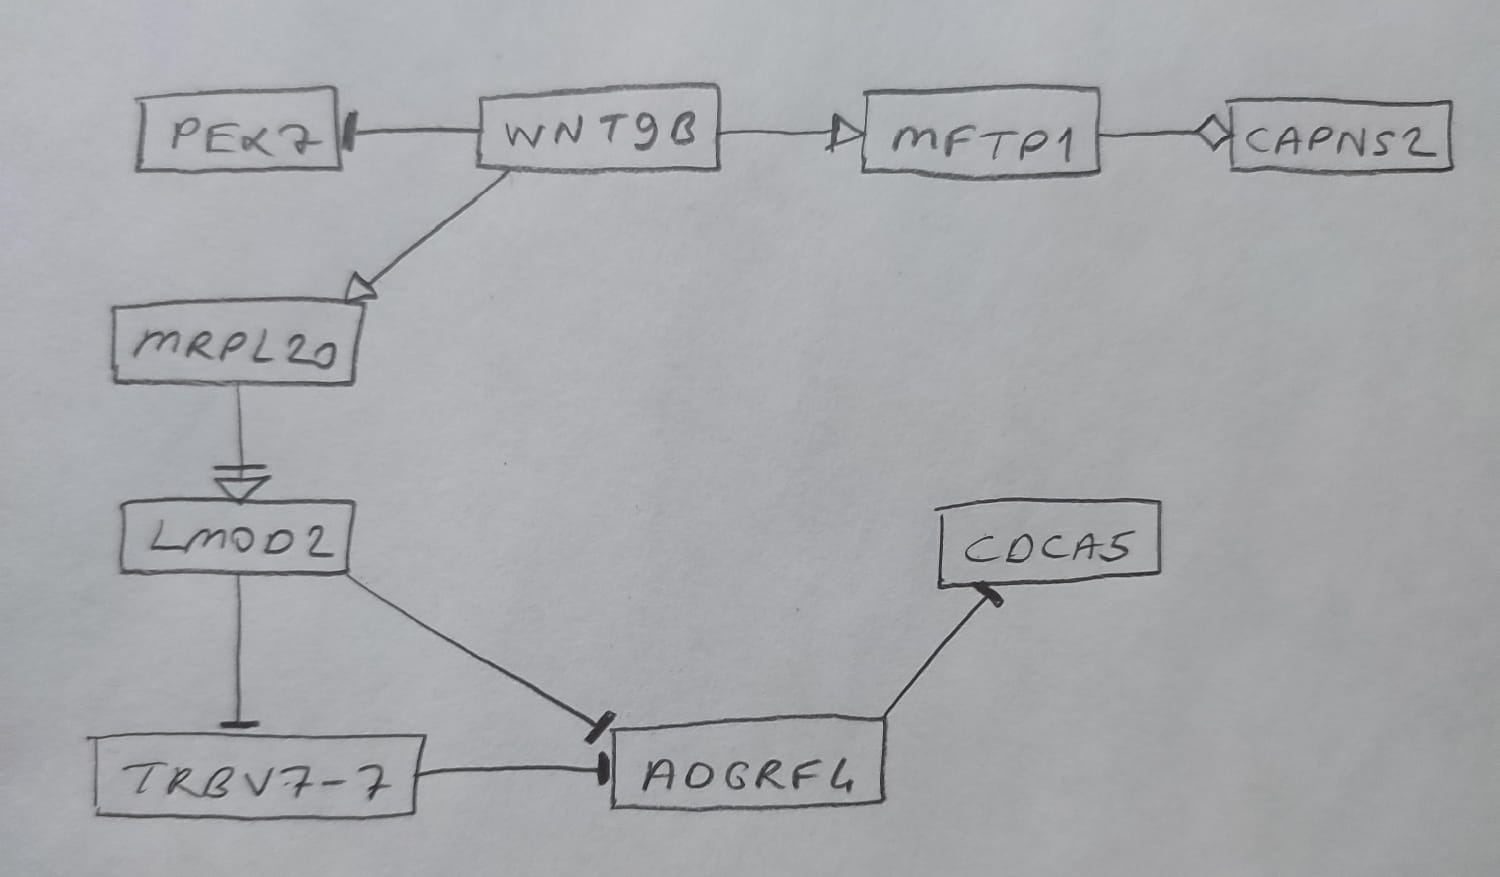 PEX7
WNT9B
MFTP1
CAPNS2
MRPL20
LMOD2
CDCA5
TRBV7-7
ADGRF4